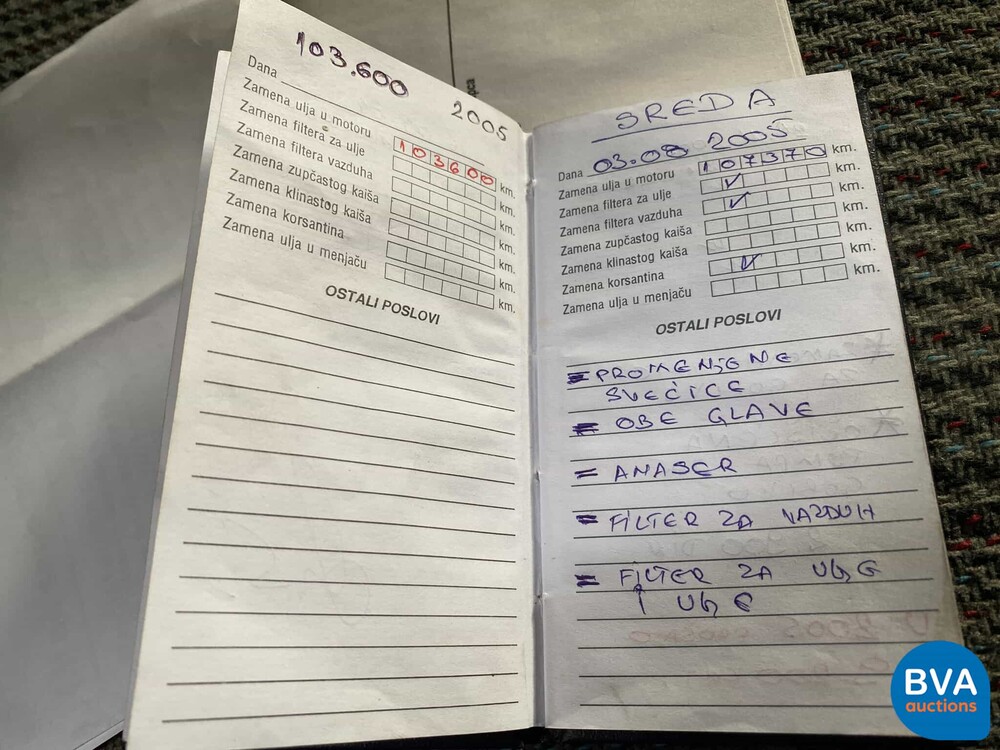 103.600
2005
Dana
Zamena ulja u motoru 103600 km.
Zamena filtera za ulje km.
Zamena filtera vazduha km.
Zamena zupčastog kaiša km.
Zamena klinastog kaiša km.
Zamena korsantina km.
Zamena ulja u menjaču km.
OSTALI POSLOVI
SREDA
Dana 03.08 2005
Zamena ulja u motoru 107370 km.
Zamena filtera za ulje ✓ km.
Zamena filtera vazduha ✓ km.
Zamena zupčastog kaiša km.
Zamena klinastog kaiša km.
Zamena korsantina ✓ km.
Zamena ulja u menjaču km.
OSTALI POSLOVI
= PROMENjENE
SVEĆICE
= OBE GLAVE
= ANASER
= FILTER ZA VAZDUH
= FILTER ZA UljE
I UljE
BVA
auctions